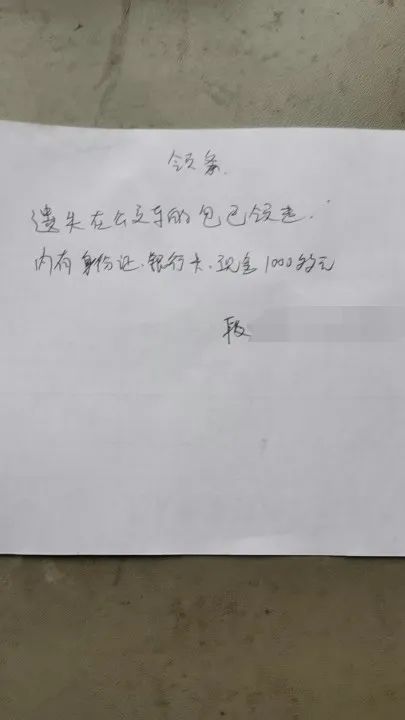 领条
遗失在公交车的包已领走.
内有身份证、银行卡、现金1000多元
段